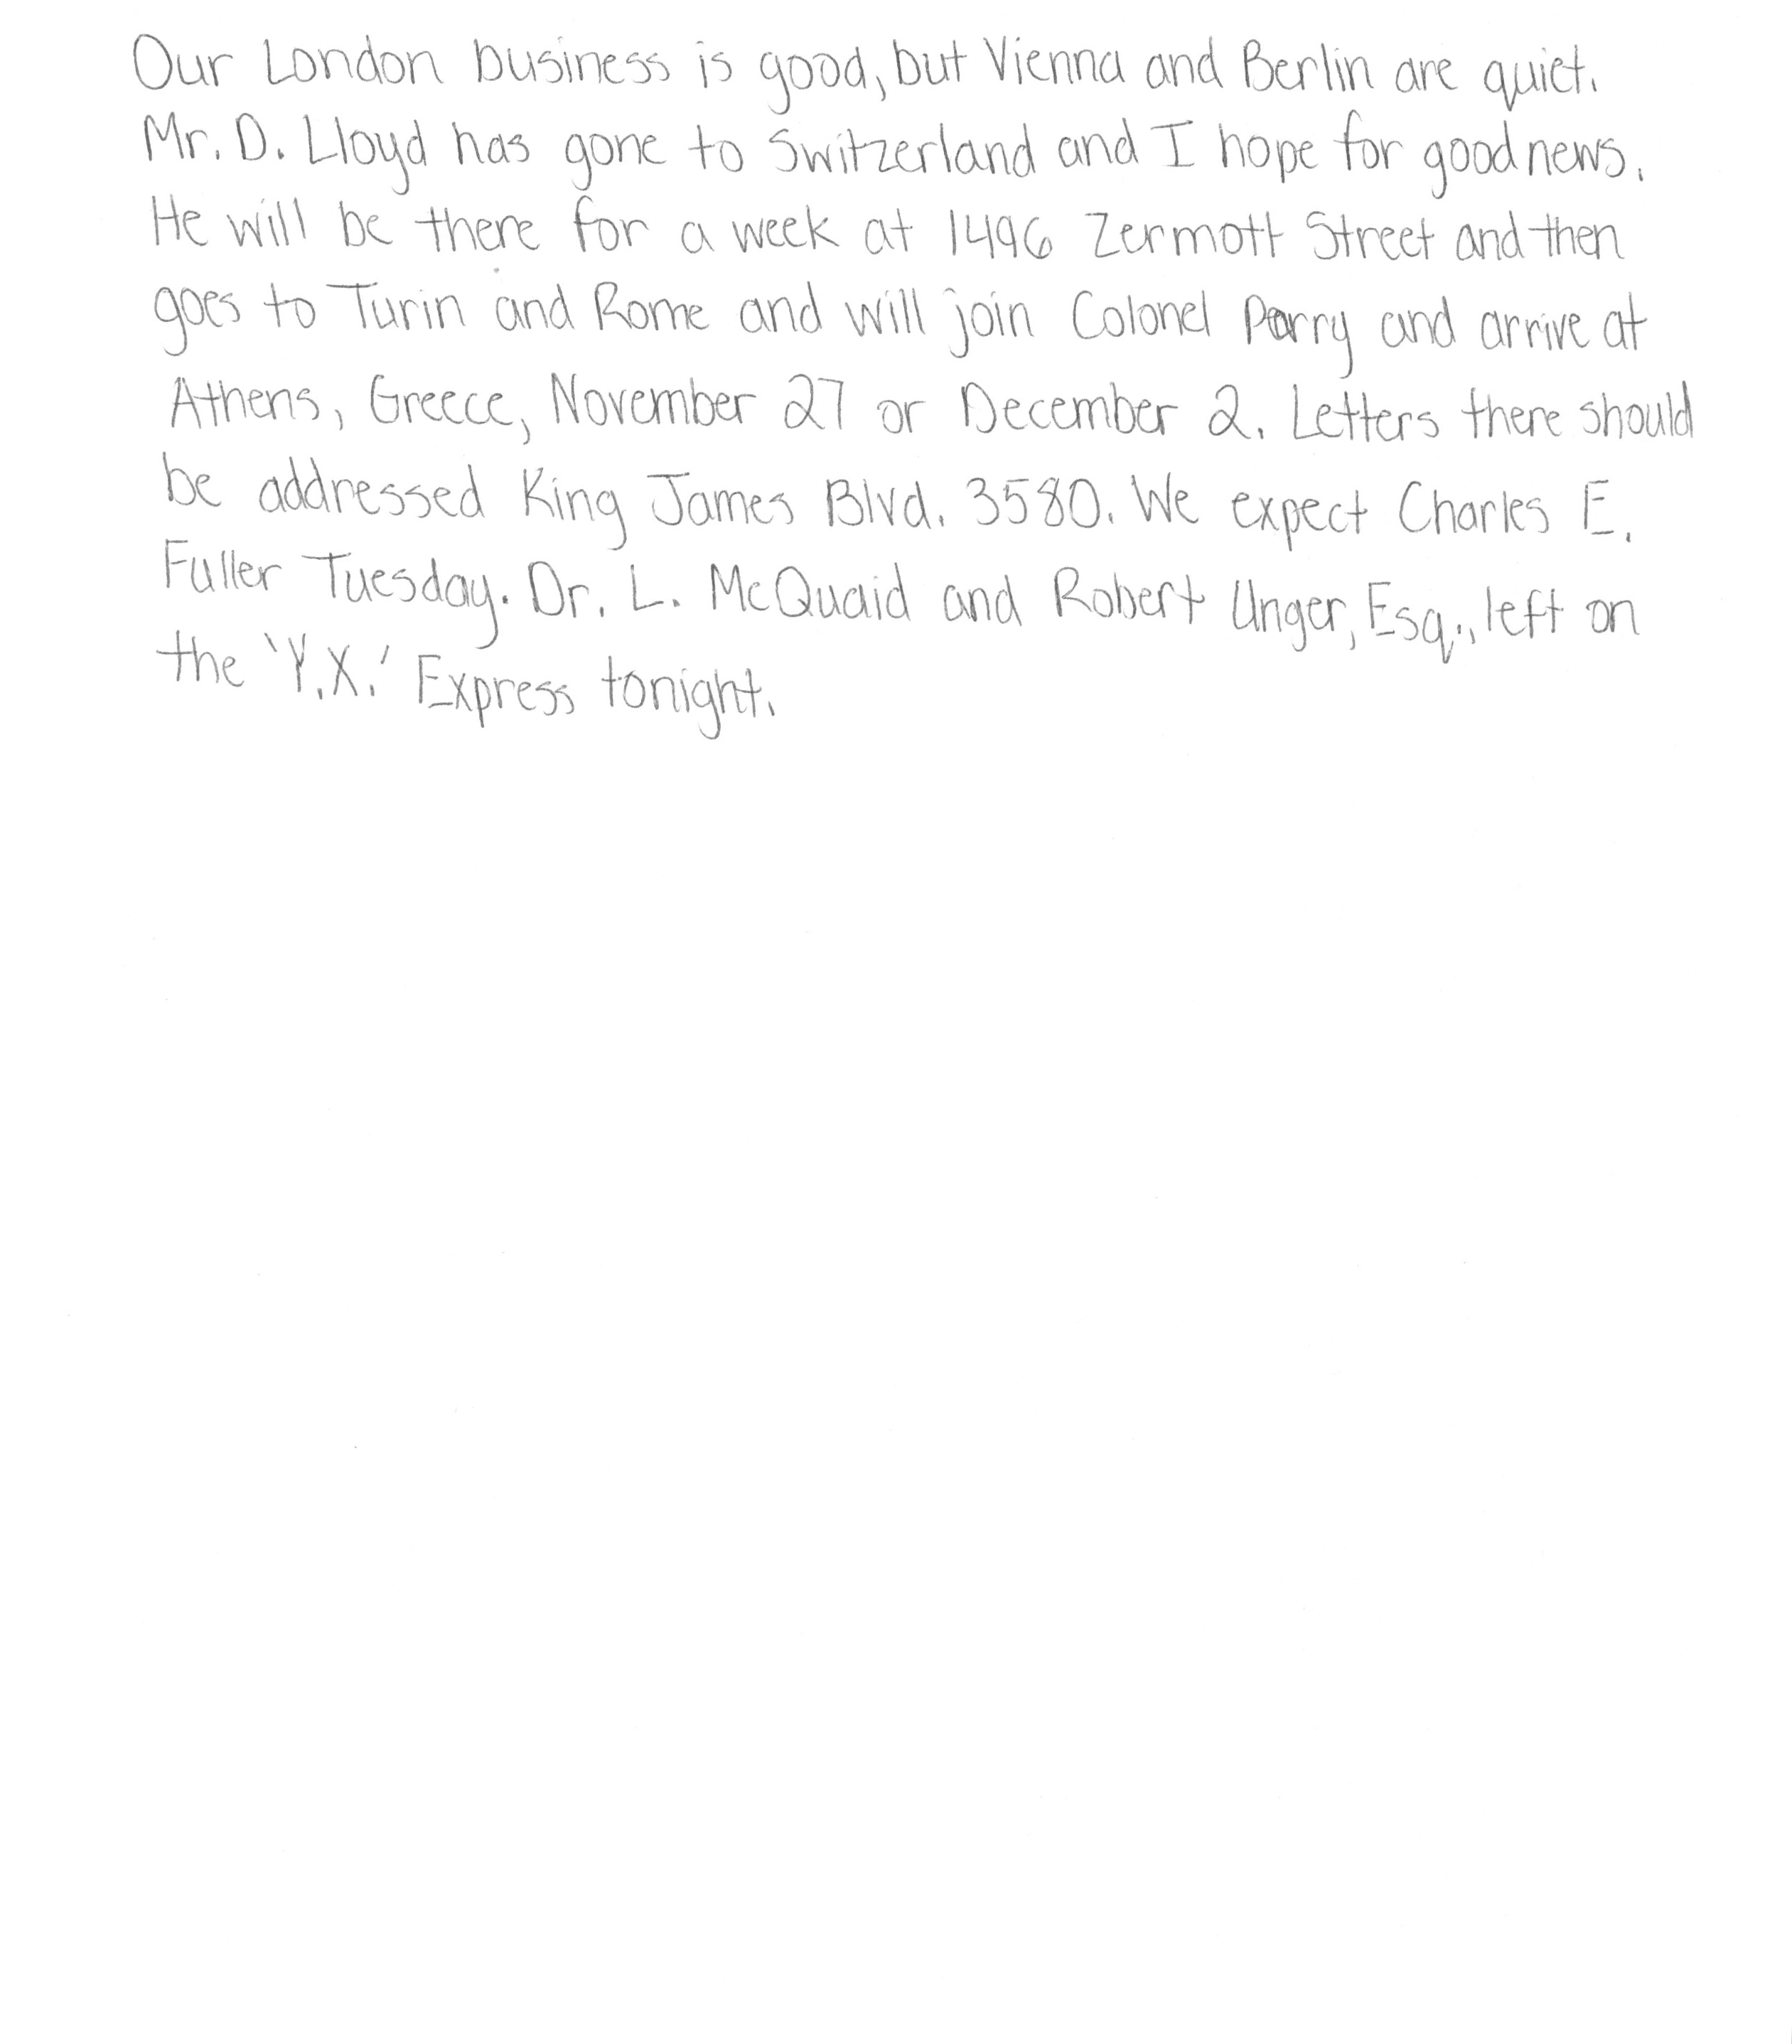 Our London business is good, but Vienna and Berlin are quiet.
Mr. D. Lloyd has gone to Switzerland and I hope for good news.
He will be there for a week at 1496 Zermott Street and then
goes to Turin and Rome and will join Colonel Parry and arrive at
Athens, Greece, November 27 or December 2. Letters there should
be addressed King James Blvd. 3580. We expect Charles E.
Fuller Tuesday. Dr. L. McQuaid and Robert Unger, Esq., left on
the 'Y.X.' Express tonight.